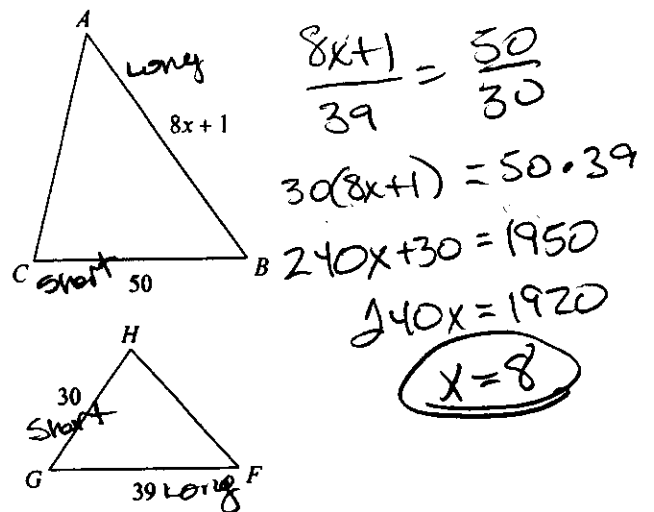 A
Long
8x + 1
C
Short
50
B
H
30
Short
G
39 Long
F
8x+1/39 = 50/30
30(8x+1) = 50·39
240x+30 = 1950
240x = 1920
x = 8